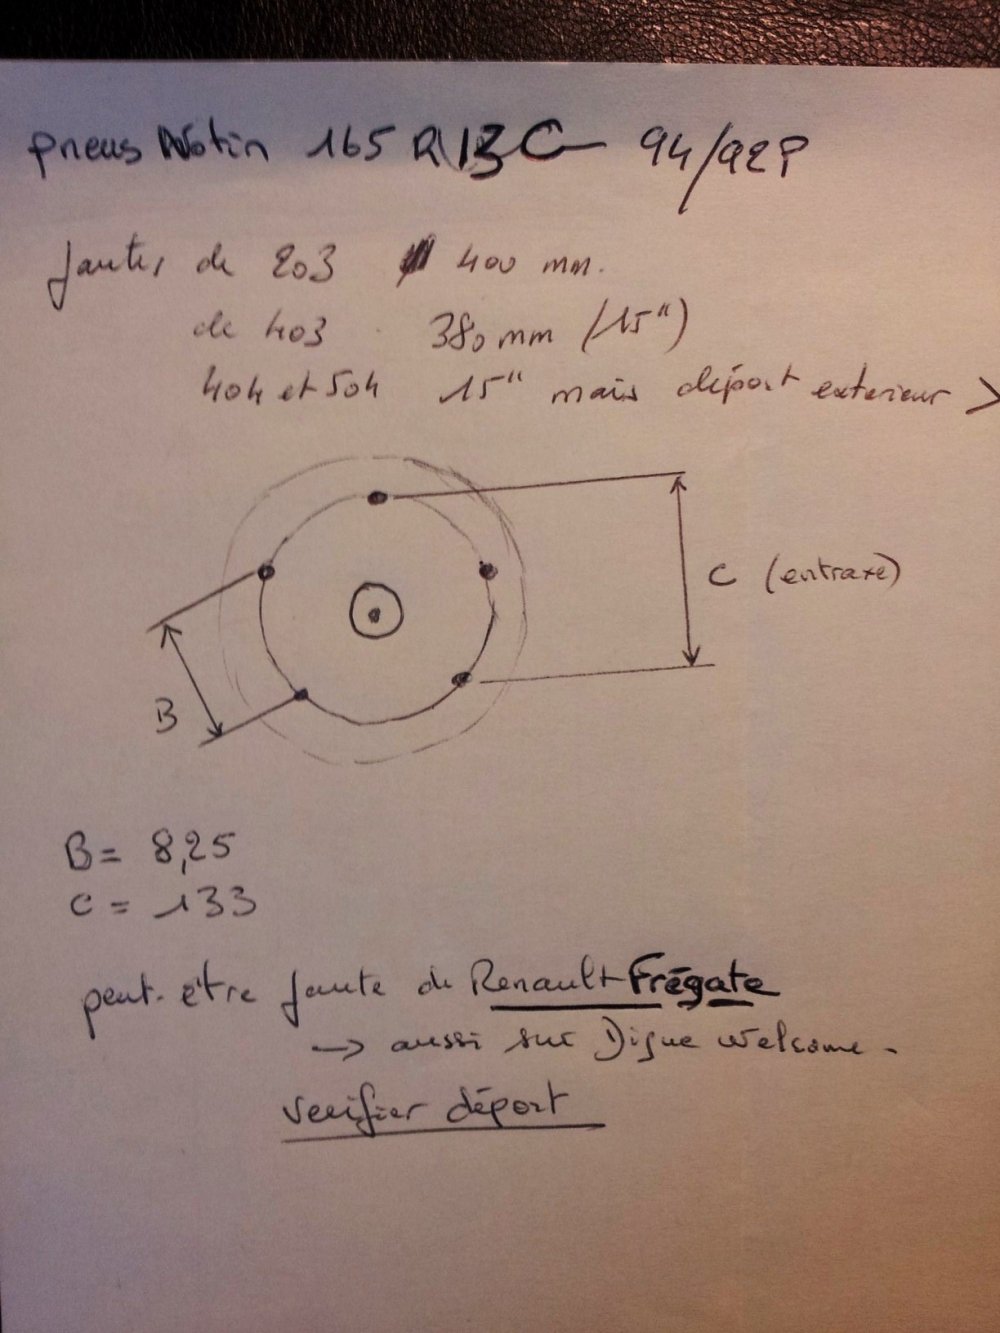 pneus Notin 165 R 13 C 94/92P
Jantes de 203 400 mm.
de 403 380 mm (15")
404 et 504 15" mais déport exterieur >
C (entraxe)
B
B = 8,25
C = 133
peut-être jante de Renault Frégate
→ aussi sur Digue Welcome.
verifier déport